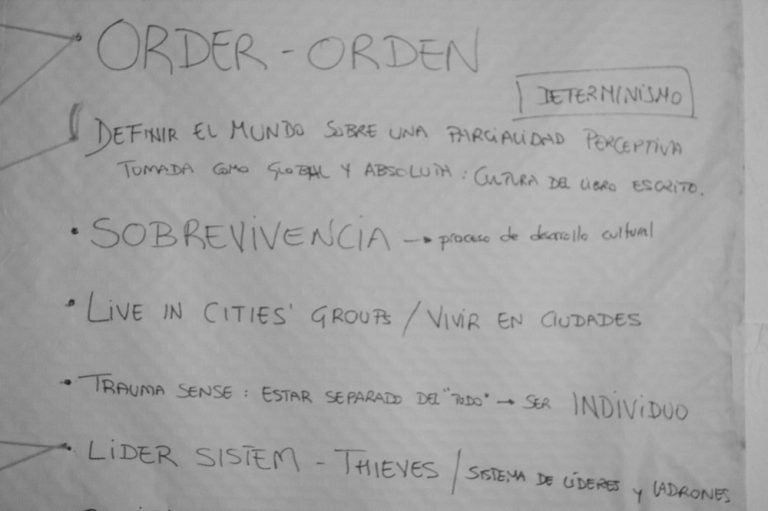 • ORDER - ORDEN
DETERMINISMO
DEFINIR EL MUNDO SOBRE UNA PARCIALIDAD PERCEPTIVA
TOMADA COMO GLOBAL Y ABSOLUTA : CULTURA DEL LIBRO ESCRITO.
• SOBREVIVENCIA → proceso de desarrollo cultural
• LIVE IN CITIES' GROUPS / VIVIR EN CIUDADES
• TRAUMA SENSE : ESTAR SEPARADO DEL "TODO" → SER INDIVIDUO
• LIDER SISTEM - THIEVES / SISTEMA DE LÍDERES y LADRONES